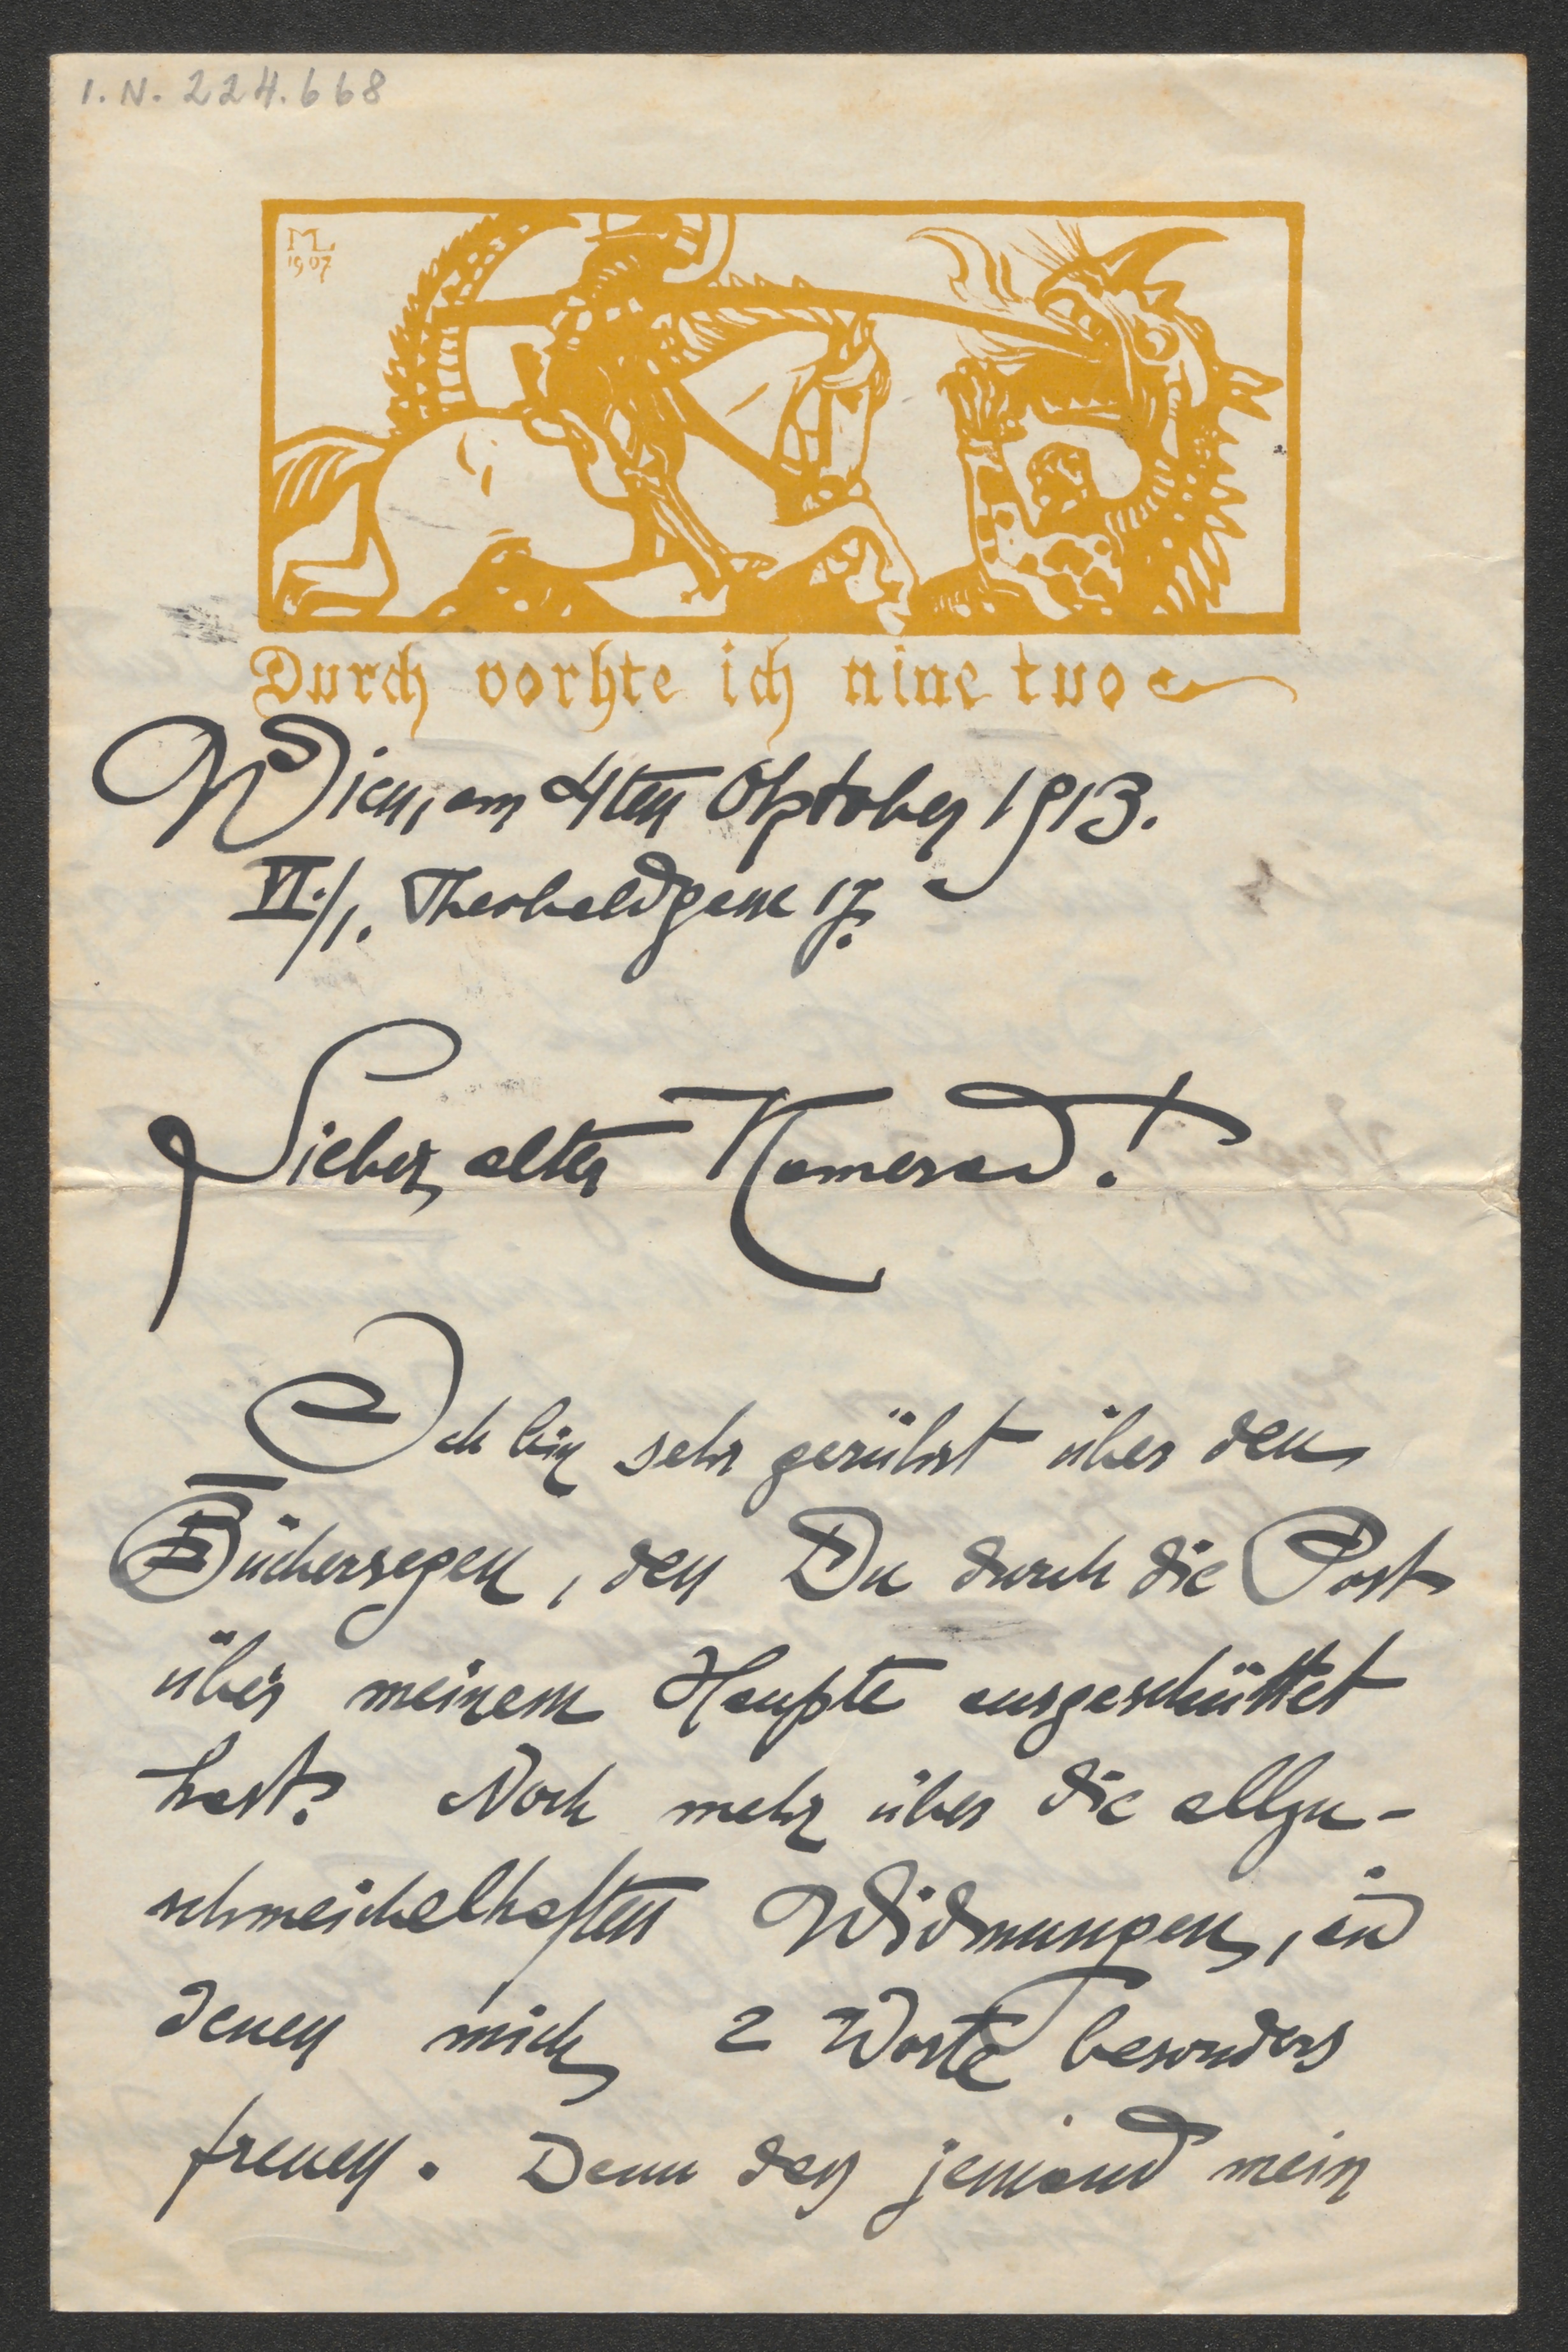 I. N. 224.668
ML
1907
Durch vorhte ich nine tuo
Wien, am 4ten Oktober 1913.
VI./1. Theobaldgasse 17.
Lieber, alter Kamerad!
Ich bin sehr gerührt über den
Büchersegen, den Du durch die Post
über meinem Haupte ausgeschüttet
hast. Noch mehr über die allzu-
schmeichelhaften Widmungen, in
denen mich 2 Worte besonders
freuen. Denn den jemand mein